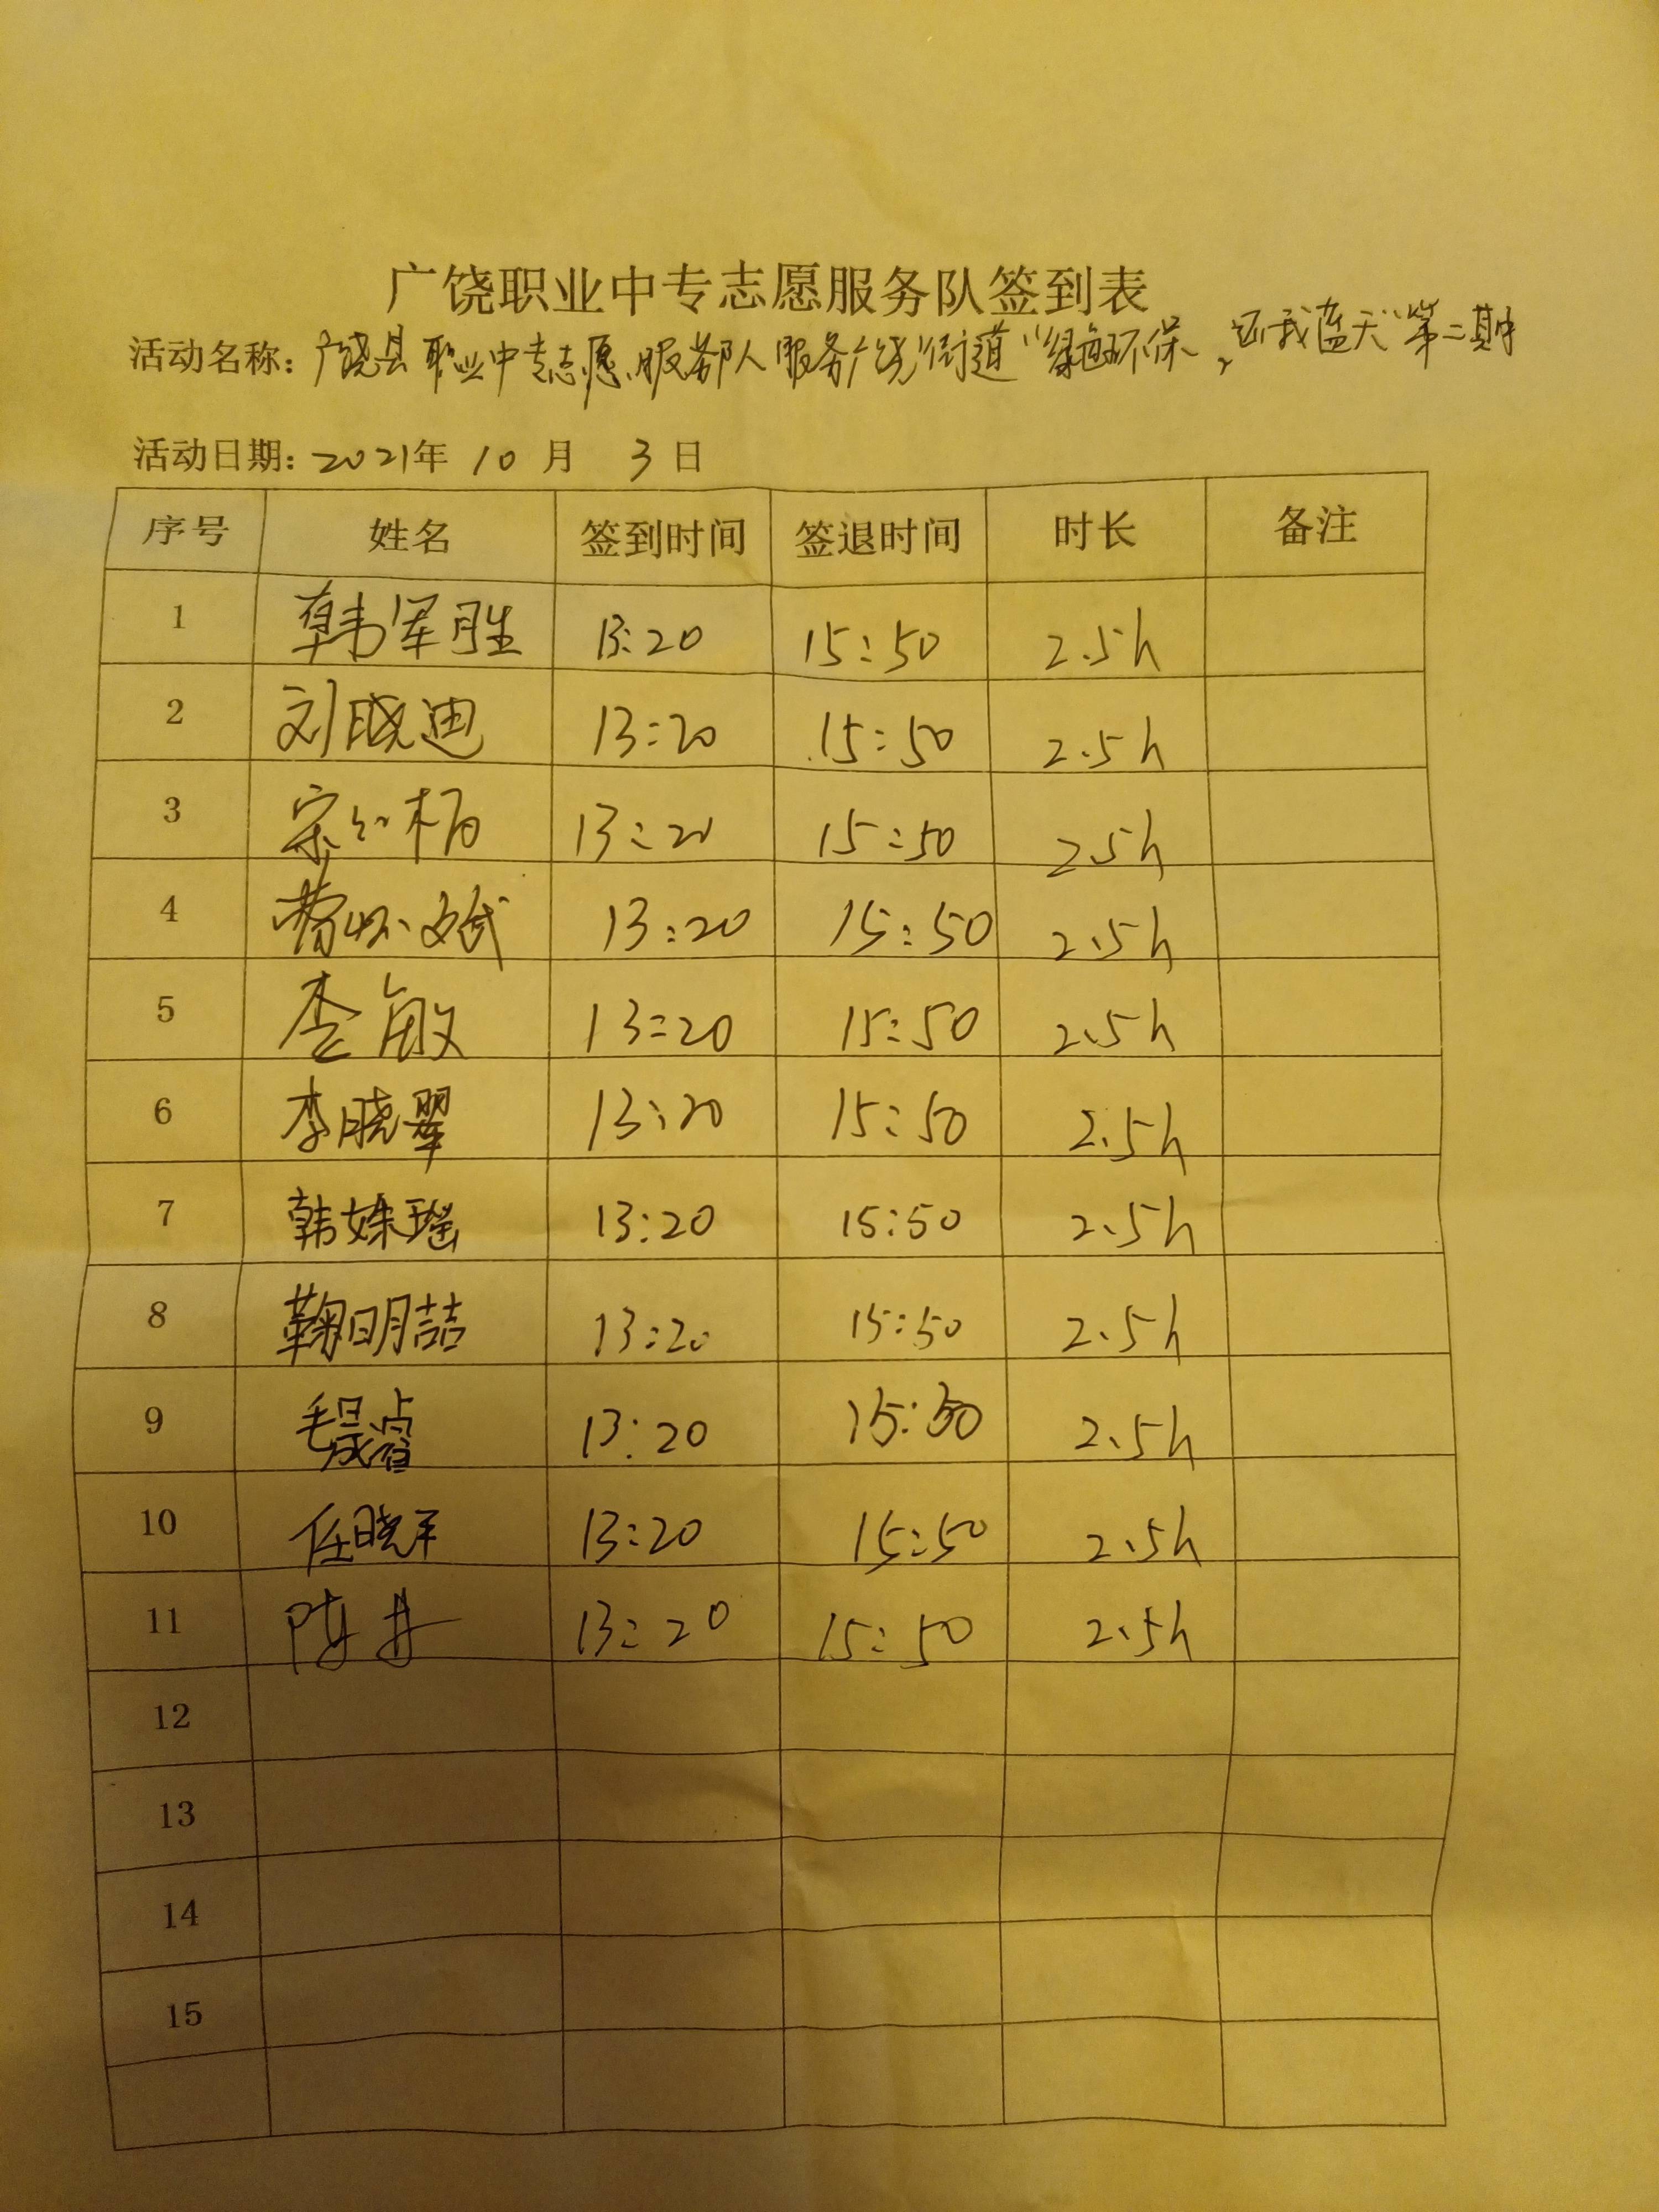 广饶职业中专志愿服务队签到表
活动名称：广饶县职业中专志愿服务队服务广饶街道“绿色环保，还我蓝天”第二期
活动日期：2021年 10 月 3 日
序号 姓名 签到时间 签退时间 时长 备注
1 韩军胜 13:20 15:50 2.5h
2 刘晓迪 13:20 15:50 2.5h
3 宋红梅 13:20 15:50 2.5h
4 13:20 15:50 2.5h
5 李敏 13:20 15:50 2.5h
6 李晓翠 13:20 15:50 2.5h
7 韩姝瑶 13:20 15:50 2.5h
8 鞠明喆 13:20 15:50 2.5h
9 毛晟睿 13:20 15:50 2.5h
10 任晓军 13:20 15:50 2.5h
11 陈 13:20 15:50 2.5h
12
13
14
15